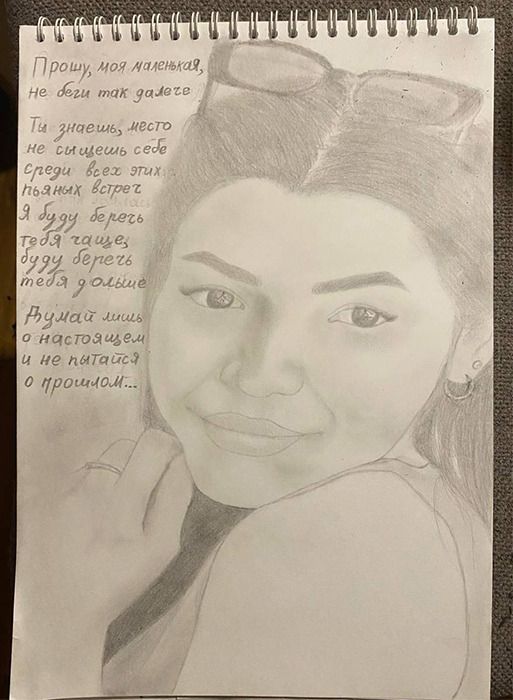 Прошу, моя маленькая,
не беги так далече
Ты знаешь, место
не сыщешь себе
среди всех этих
пьяных встреч
Я буду беречь
тебя чаще,
буду беречь
тебя дольше
Думай лишь
о настоящем
и не пытайся
о прошлом...